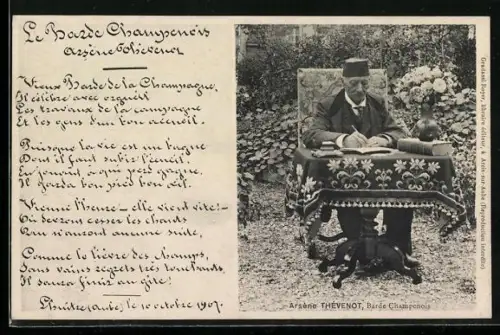 Le Barde Champenois
Arsène Thévenot
Vieux Barde de la Champagne,
Il célèbre avec orgueil
Les travaux de la campagne
Et les gens d'un bon accueil.
Puisque la vie est un bagne
Dont il faut subir l'écueil
En jouant à qui perd gagne,
Il garda bon pied bon œil.
Vienne l'heure - elle vient vite! -
Où devront cesser les chants
Qui n'auront aucune suite,
Comme le lièvre des champs,
Sans vains regrets très touchants,
Il saura finir au gîte!
(Aube) le 10 octobre 1907.
Arsène THÉVENOT, Barde Champenois
Royer, libraire éditeur, à Arcis-sur-Aube (Reproduction interdite)